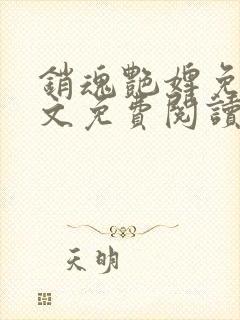 銷魂艷婢免
文免費閱讀
天明